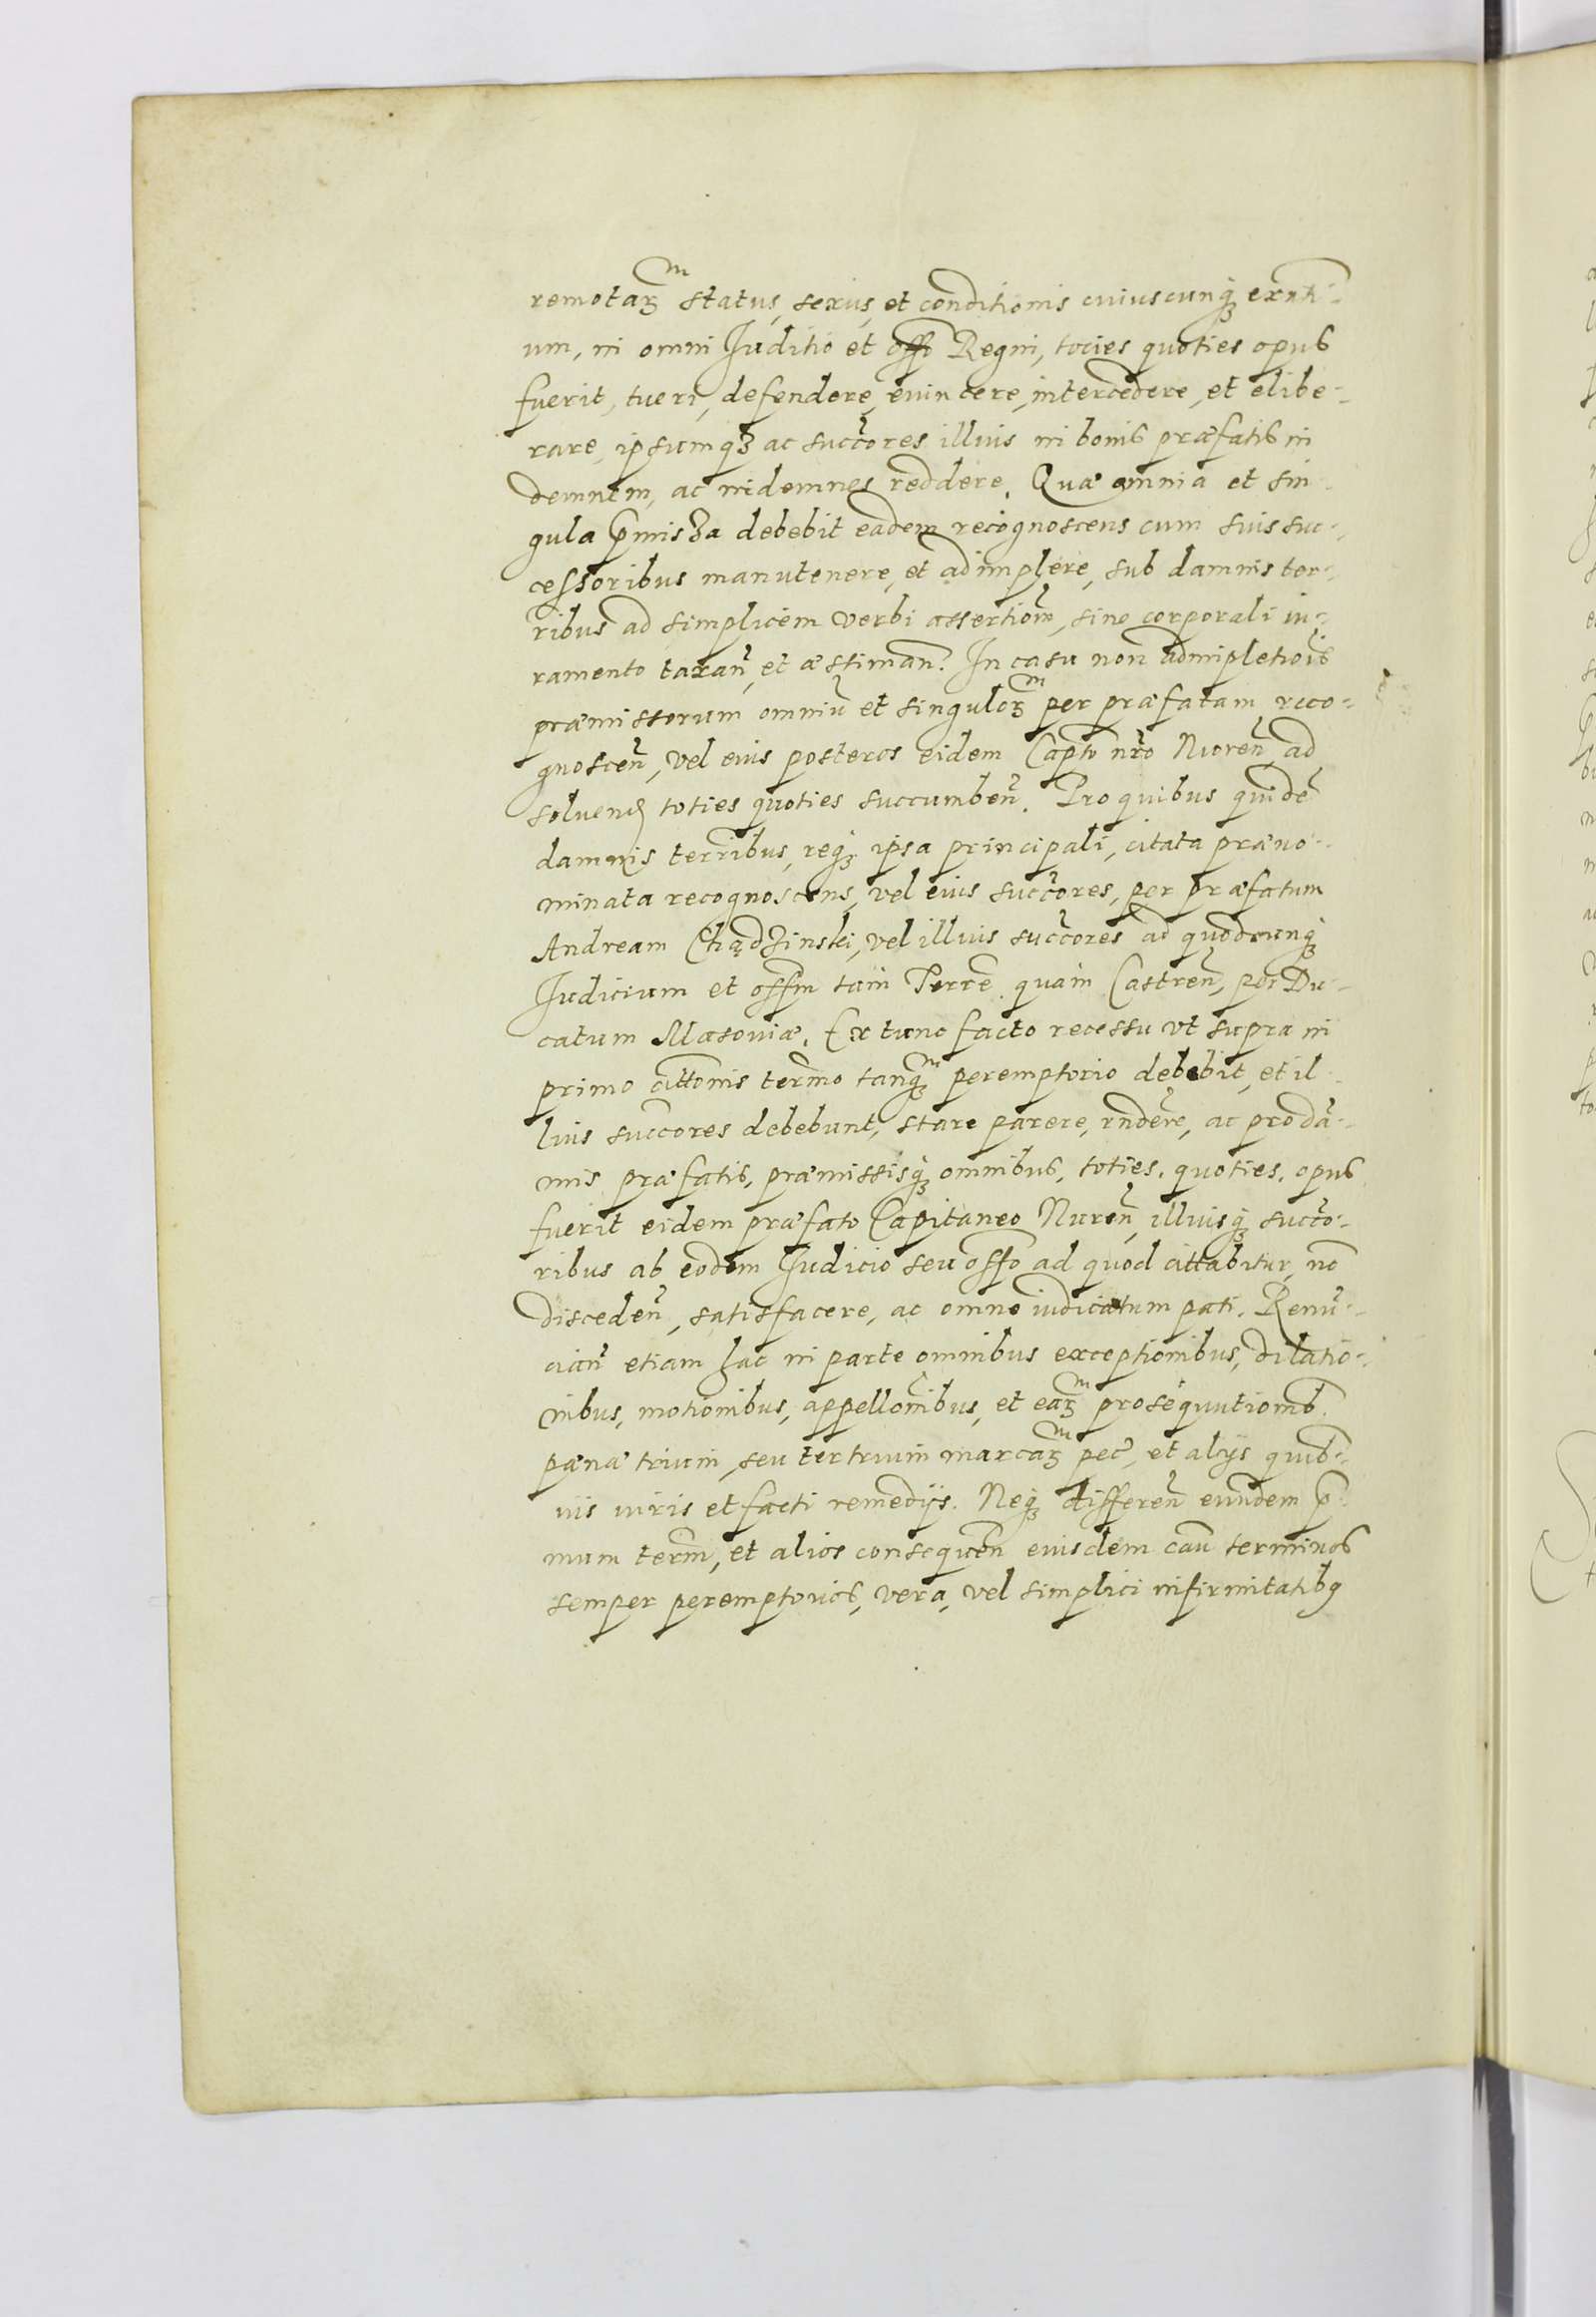 remotarꝫ status, sexus, et conditionis cuiuscunqꝫ exñti-
um, in omni Iuditio et offo Regni, tocies quoties opus
fuerit, tueri, defendere, euincere, intercedere, et elibe-
rare, ipsumqꝫ ac succores illius in bonis præfatis in
demnem, ac indemnes reddere. Quæ omnia et sin-
gula p̄missa debebit eadem recognoscens cum suis suc-
cessoribus manutenere, et adimplere, sub damnis ter-
ribus ad simplicem verbi assertiom̃, sine corporali iu-
ramento taxañ, et æstimañ. In casu non adimpletiois
præmissorum omniũ et singulorꝫ per præfatam reco-
gnosceñ, vel eius posteros eidem Capto nr̃o Nureñ, ad
soluend toties quoties succumbeñ. Pro quibus quidẽ
damnis terribus, reqꝫ ipsa principali, citata præno-
minata recognoscens, vel eius succores, per præfatum
Andream Chądzinski, vel illius succores ad quodcunqꝫ
Iudicium et offm tam Terrẽ quam Castreñ, per Du-
catum Masouiæ. Ex tunc facto recessu vt supra in
primo cittonis termo tanqꝫ peremptorio debebit, et il-
lius succores debebunt, stare parere, rñdere, ac pro dã-
nis præfatis, præmissisqꝫ omnibus, toties, quoties, opus
fuerit eidem præfato Capitaneo Nureñ, illiusqꝫ succo-
ribus ab eodem Iudicio seu offo ad quod cittabitur, nõ
discedeñ, satisfacere, ac omne iudicatum pati. Renũ-
ciañ etiam hac in parte omnibus exceptionibus, dilatio-
nibus, motionibus, appellonibus, et earꝫ prosequutionib
pænæ trium, seu ter trium marcarꝫ pec̃, et alijs quib-
uis iuris et facti remedijs. Neqꝫ differeñ eundem p̄-
mum term̃, et alios consequeñ eiusdem cau terminos
semper peremptorios, vera, vel simplici infirmitatibꝫ